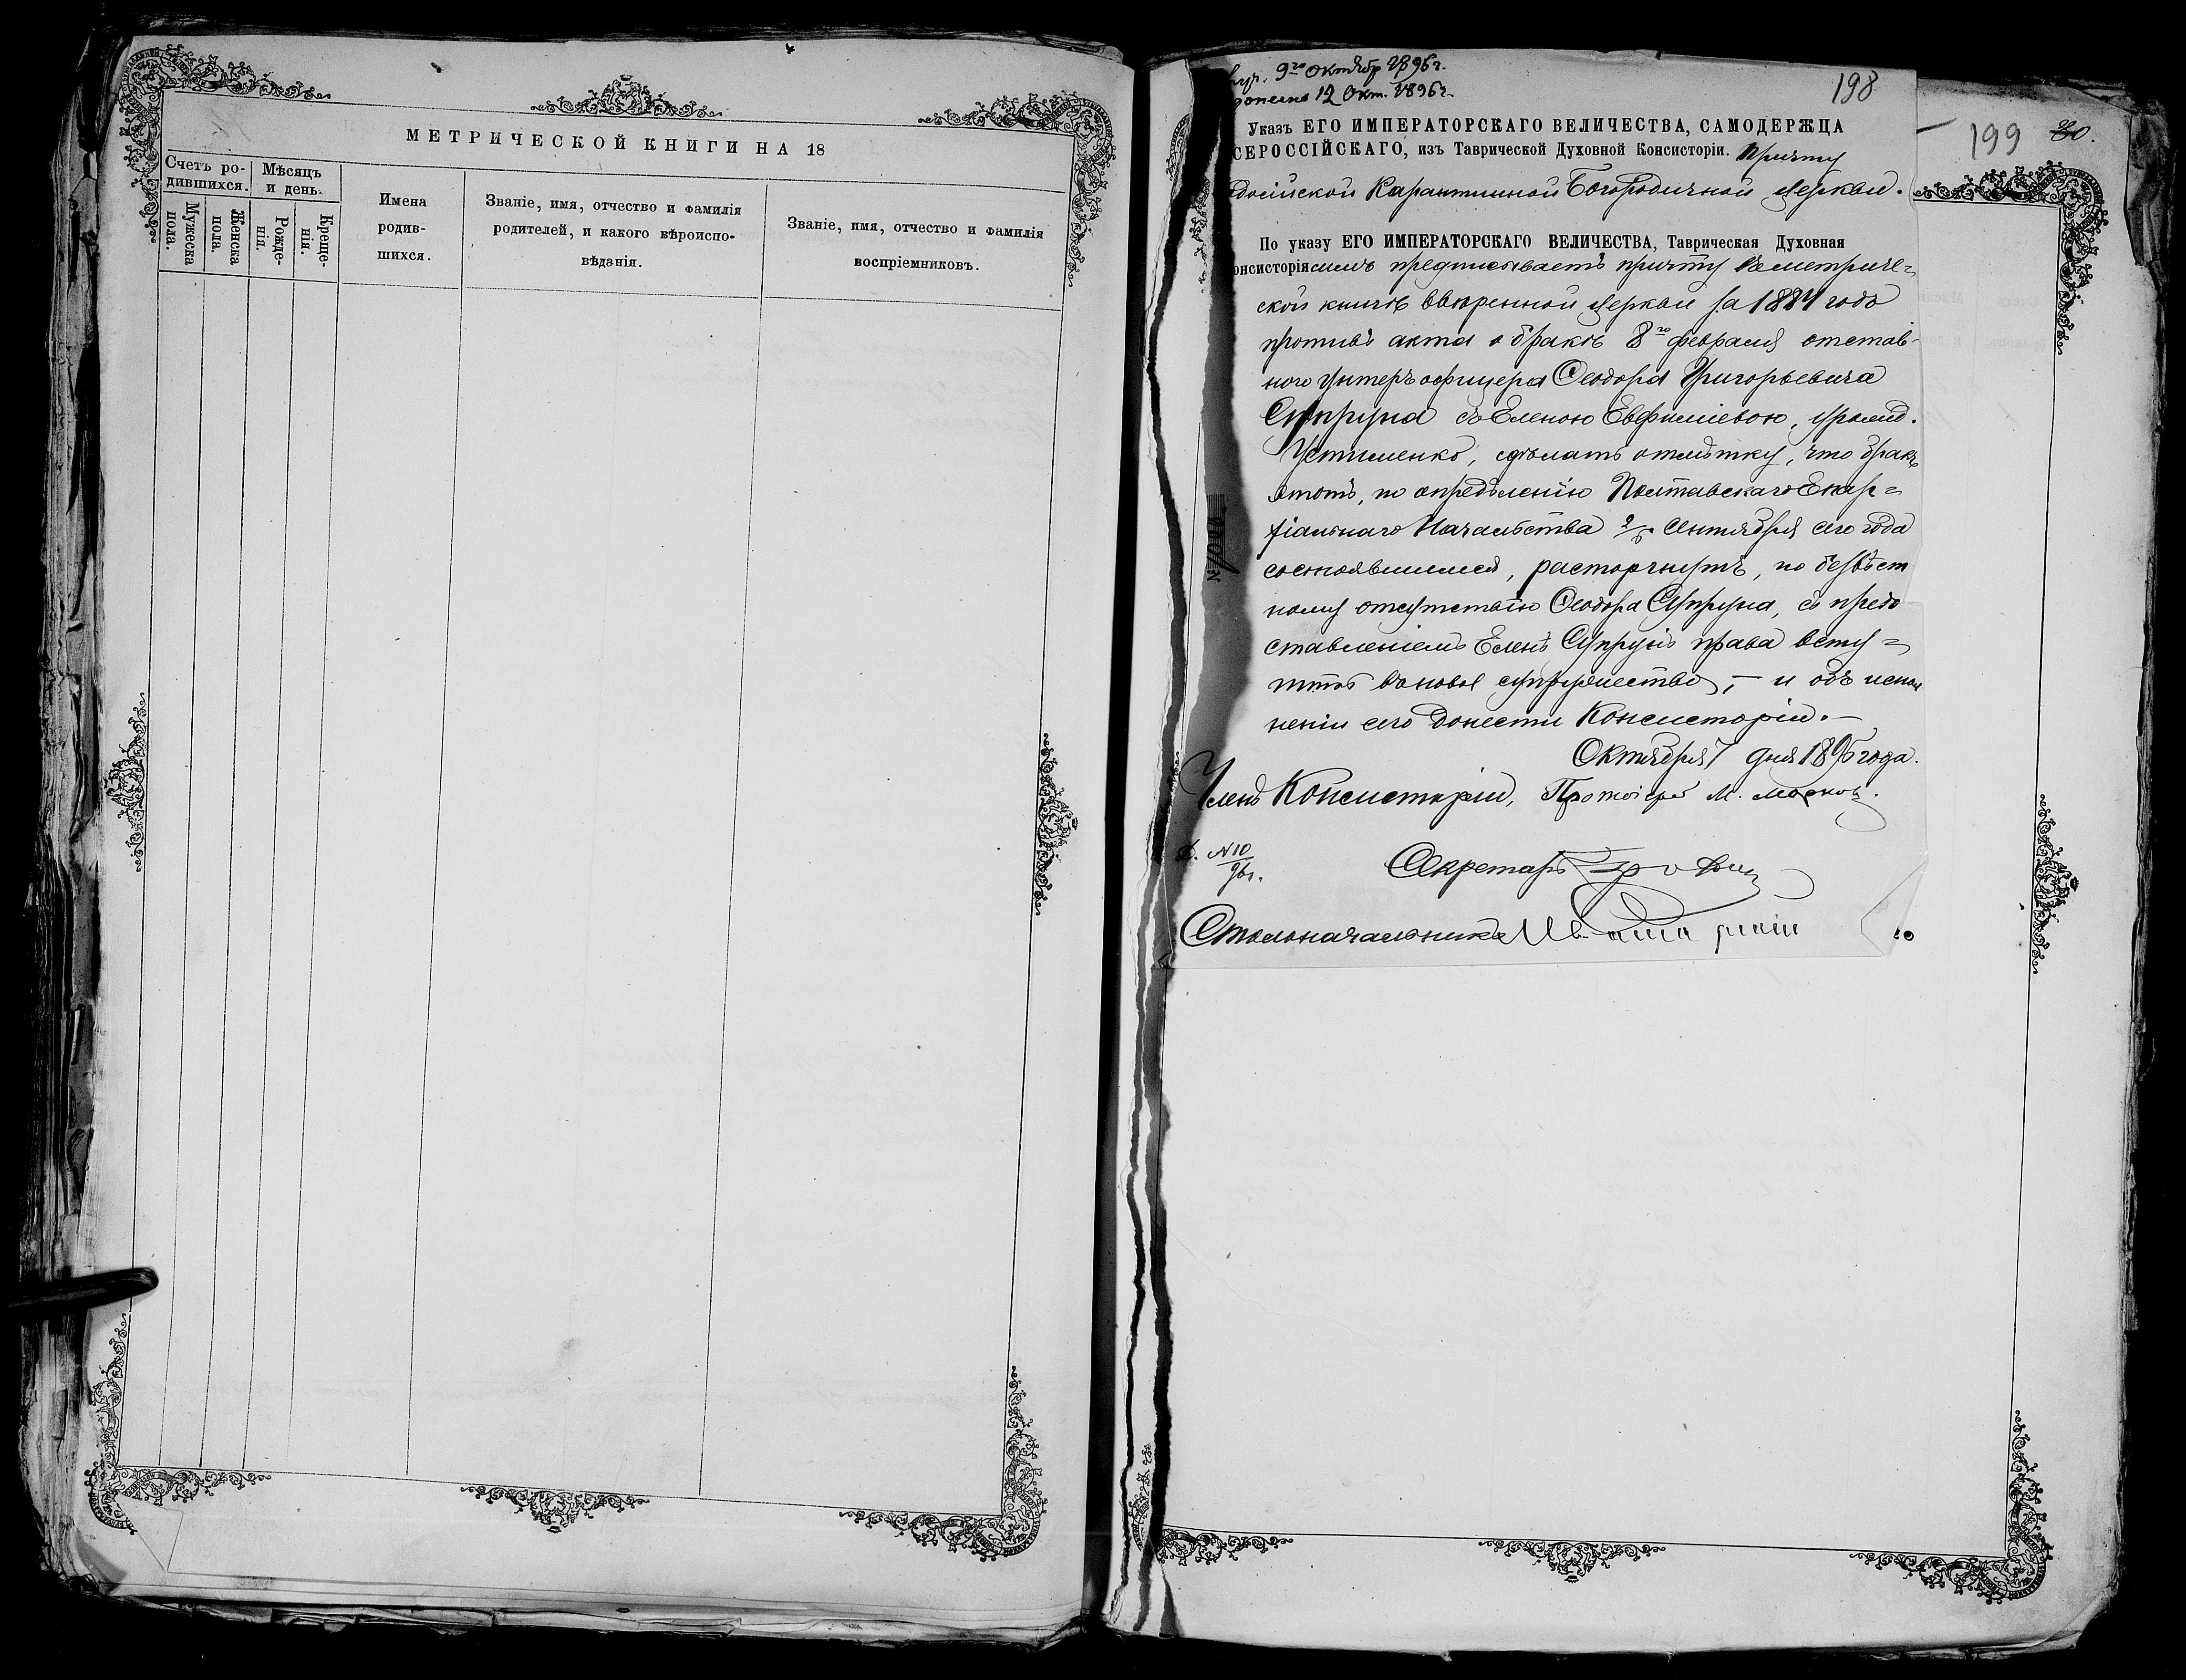 МЕТРИЧЕСКОЙ КНИГИ НА 18
Счетъ ро-
дившихся.
Мѣсяцъ
и день.
Мужеска
пола.
Женска
пола.
Рожде-
нія.
Креще-
нія.
Имена
родив-
шихся.
Званіе, имя, отчество и фамилія
родителей, и какого вѣроиспо-
вѣданія.
Званіе, имя, отчество и фамилія
воспріемниковъ.
9го Октябр 1896 г.
12 Окт. 1896 г.
198
199
Указъ ЕГО ИМПЕРАТОРСКАГО ВЕЛИЧЕСТВА, САМОДЕРЖЦА
СЕРОССІЙСКАГО, изъ Таврической Духовной Консисторіи. Причту
досійской Карантинной Богородичной церкви.
По указу ЕГО ИМПЕРАТОРСКАГО ВЕЛИЧЕСТВА, Таврическая Духовная
онсисторія симъ предписываетъ причту въ метриче=
ской книгѣ ввѣренной церкви за 1884 годъ
противъ акта о бракѣ 8го февраля отстав-
ного унтеръ офицера Ѳеодора Григорьевича
Супруна съ Еленою Евфиміевою, урожд.
Устименко, сдѣлать отмѣтку, что бракъ
этотъ, по опредѣленію Полтавскаго Епар=
хіальнаго Начальства 2/5 Сентября сего года
состоявшемся, расторгнутъ, по безвѣст
ному отсутствію Ѳеодора Супруна, съ предо
ставленіемъ Еленѣ Супрунъ права всту=
пить въ новое супружество, – и объ испол
неніи сего донести Консисторіи. –
Октября 7 дня 1896 года.
Членъ Консисторіи, Протоіерей М.
№ 10
96 г.
Секретарь
Столоначальникъ
№